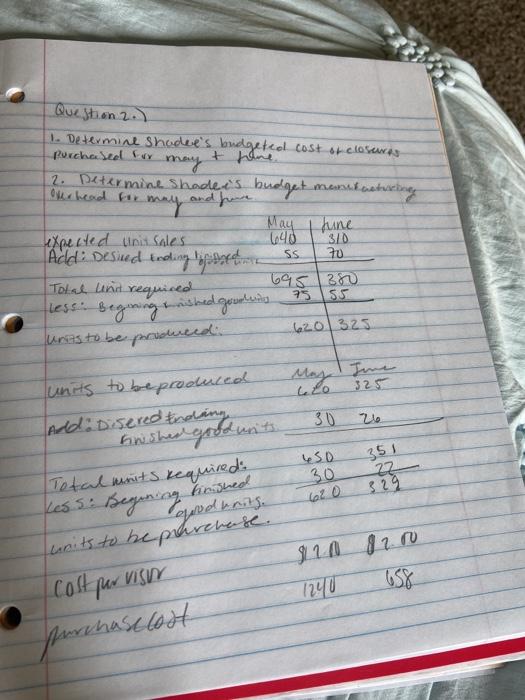 Question 2.)
1. Determine Shadee's budgeted cost of closures
purchased for may + june.
2. Determine Shadee's budget manufacturing
overhead for may and june
May June
expected unit sales 640 310
Add: Desired Ending finished 55 70
Total unit required 695 380
Less: Begining finished good units 75 55
units to be produced: 620 325
May June
units to be produced 620 325
Add: Disered Ending 30 26
finished good units
Total units required: 650 351
Less: Begining finished 30 22
good units. 620 329
units to be purchase.
Cost per visor $2.00 $2.00
1240 658
purchase cost